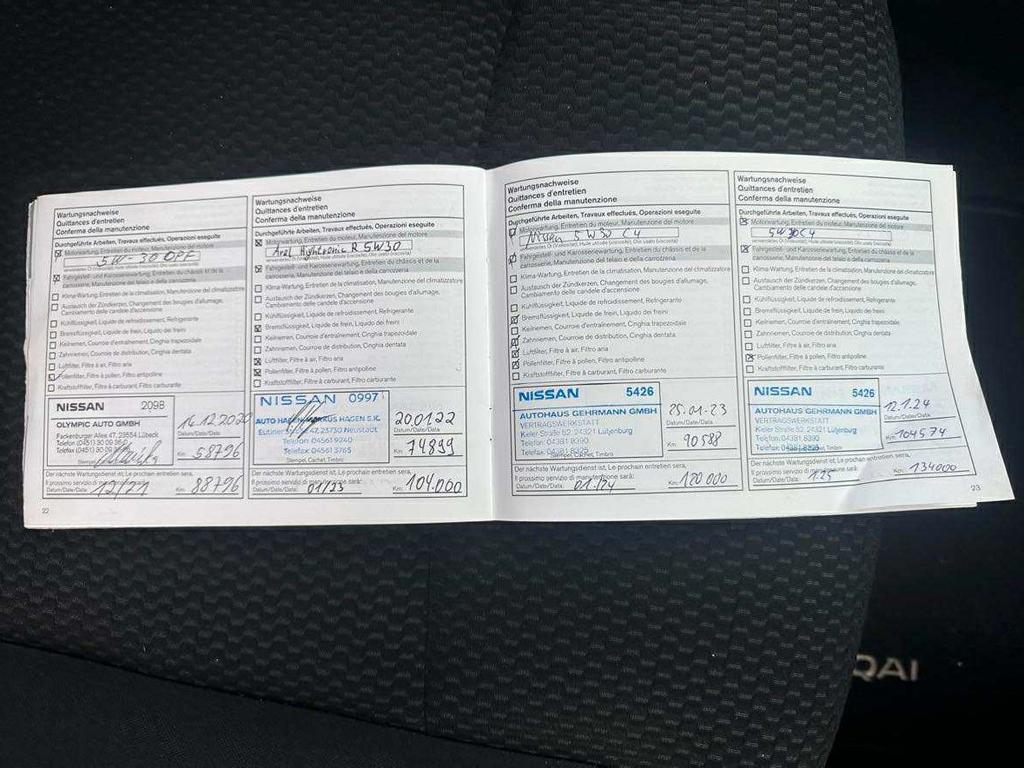 Wartungsnachweise
Quittances d'entretien
Conferma della manutenzione
Durchgeführte Arbeiten, Travaux effectués, Operazioni eseguite
Motorwartung, Entretien du moteur, Manutenzione del motore
5W-30 DPF
Fahrgestell- und Karosseriewartung, Entretien du châssis et de la
carosserie, Manutenzione del telaio e della carrozzeria
Klima-Wartung, Entretien de la climatisation, Manutenzione del climatizzatore
Austausch der Zündkerzen, Changement des bougies d'allumage,
Cambiamento delle candele d'accensione
Kühlflüssigkeit, Liquide de refroidissement, Refrigerante
Bremsflüssigkeit, Liquide de frein, Liquido dei freini
Keilriemen, Courroie d'entraînement, Cinghia trapezoidale
Zahnriemen, Courroie de distribution, Cinghia dentata
Luftfilter, Filtre à air, Filtro aria
Pollenfilter, Filtre à pollen, Filtro antipolline
Kraftstofffilter, Filtre à carburant, Filtro carburante
NISSAN 2098
OLYMPIC AUTO GMBH
Fackenburger Allee 47, 23554 Lübeck
14.12.2020
Datum/Date/Data:
Km: 58796
Der nächste Wartungsdienst ist, Le prochain entretien sera,
Il prossimo servizio di manutenzione sarà:
Datum/Date/Data: 12/21 Km: 88796
22
Wartungsnachweise
Quittances d'entretien
Conferma della manutenzione
Durchgeführte Arbeiten, Travaux effectués, Operazioni eseguite
Motorwartung, Entretien du moteur, Manutenzione del motore
Aral Hightronic R 5W30
Fahrgestell- und Karosseriewartung, Entretien du châssis et de la
carosserie, Manutenzione del telaio e della carrozzeria
Klima-Wartung, Entretien de la climatisation, Manutenzione del climatizzatore
Austausch der Zündkerzen, Changement des bougies d'allumage,
Cambiamento delle candele d'accensione
Kühlflüssigkeit, Liquide de refroidissement, Refrigerante
Bremsflüssigkeit, Liquide de frein, Liquido dei freini
Keilriemen, Courroie d'entraînement, Cinghia trapezoidale
Zahnriemen, Courroie de distribution, Cinghia dentata
Luftfilter, Filtre à air, Filtro aria
Pollenfilter, Filtre à pollen, Filtro antipolline
Kraftstofffilter, Filtre à carburant, Filtro carburante
NISSAN 0997
AUTO HAGEN HAGEN E.K.
Eutiner 47, 23730 Neustadt
Telefon 04561 9240
Telefax 04561 3765
Stempel, Cachet, Timbro
20.01.22
Datum/Date/Data:
Km: 74899
Der nächste Wartungsdienst ist, Le prochain entretien sera,
Il prossimo servizio di manutenzione sarà:
Datum/Date/Data: 01/23 Km: 104.000
Wartungsnachweise
Quittances d'entretien
Conferma della manutenzione
Durchgeführte Arbeiten, Travaux effectués, Operazioni eseguite
Motorwartung, Entretien du moteur, Manutenzione del motore
5W30 C4
Fahrgestell- und Karosseriewartung, Entretien du châssis et de la
carosserie, Manutenzione del telaio e della carrozzeria
Klima-Wartung, Entretien de la climatisation, Manutenzione del climatizzatore
Austausch der Zündkerzen, Changement des bougies d'allumage,
Cambiamento delle candele d'accensione
Kühlflüssigkeit, Liquide de refroidissement, Refrigerante
Bremsflüssigkeit, Liquide de frein, Liquido dei freini
Keilriemen, Courroie d'entraînement, Cinghia trapezoidale
Zahnriemen, Courroie de distribution, Cinghia dentata
Luftfilter, Filtre à air, Filtro aria
Pollenfilter, Filtre à pollen, Filtro antipolline
Kraftstofffilter, Filtre à carburant, Filtro carburante
NISSAN 5426
AUTOHAUS GEHRMANN GMBH
VERTRAGSWERKSTATT
Kieler Straße 52, 24321 Lütjenburg
Telefon 04381 8390
Telefax 04381 8325
25.01.23
Datum/Date/Data:
Km: 90588
Der nächste Wartungsdienst ist, Le prochain entretien sera,
Il prossimo servizio di manutenzione sarà:
Datum/Date/Data: 01.24 Km: 120 000
Wartungsnachweise
Quittances d'entretien
Conferma della manutenzione
Durchgeführte Arbeiten, Travaux effectués, Operazioni eseguite
Motorwartung, Entretien du moteur, Manutenzione del motore
5W30 C4
Fahrgestell- und Karosseriewartung, Entretien du châssis et de la
carosserie, Manutenzione del telaio e della carrozzeria
Klima-Wartung, Entretien de la climatisation, Manutenzione del climatizzatore
Austausch der Zündkerzen, Changement des bougies d'allumage,
Cambiamento delle candele d'accensione
Kühlflüssigkeit, Liquide de refroidissement, Refrigerante
Bremsflüssigkeit, Liquide de frein, Liquido dei freini
Keilriemen, Courroie d'entraînement, Cinghia trapezoidale
Zahnriemen, Courroie de distribution, Cinghia dentata
Luftfilter, Filtre à air, Filtro aria
Pollenfilter, Filtre à pollen, Filtro antipolline
Kraftstofffilter, Filtre à carburant, Filtro carburante
NISSAN 5426
AUTOHAUS GEHRMANN GMBH
VERTRAGSWERKSTATT
Kieler Straße 52, 24321 Lütjenburg
Telefon 04381 8390
Telefax 04381 8325
Stempel, Cachet, Timbro
12.1.24
Datum/Date/Data:
Km: 104574
Der nächste Wartungsdienst ist, Le prochain entretien sera,
Il prossimo servizio di manutenzione sarà:
Datum/Date/Data: 1.25 Km: 134000
23
QAI